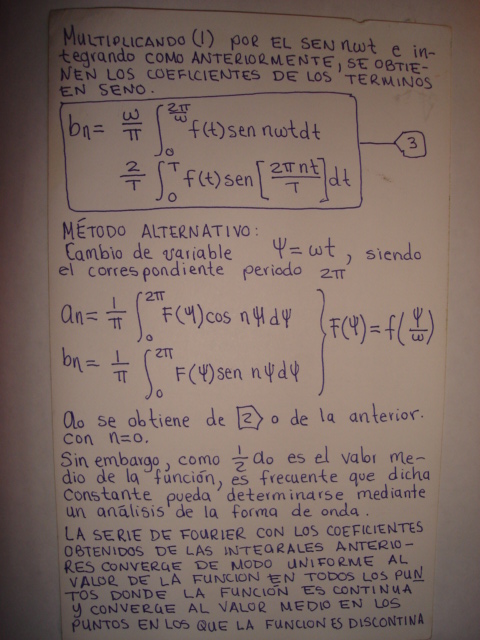 MULTIPLICANDO (1) POR EL SEN nωt e in-
tegrando COMO ANTERIORMENTE, SE OBTIE-
NEN LOS COEFICIENTES DE LOS TERMINOS
EN SENO.
bn = ω/π ∫₀^(2π/ω) f(t) sen nωt dt
3
2/T ∫₀^T f(t) sen [2πnt/T] dt
MÉTODO ALTERNATIVO:
Cambio de variable Ψ = ωt, siendo
el correspondiente periodo 2π
an = 1/π ∫₀^(2π) F(Ψ) cos nΨ dΨ
F(Ψ) = f(Ψ/ω)
bn = 1/π ∫₀^(2π) F(Ψ) sen nΨ dΨ
ao se obtiene de 2 o de la anterior.
con n=0.
Sin embargo, como 1/2 ao es el valor me-
dio de la función, es frecuente que dicha
constante pueda determinarse mediante
un análisis de la forma de onda.
LA SERIE DE FOURIER CON LOS COEFICIENTES
OBTENIDOS DE LAS INTEGRALES ANTERIO-
RES CONVERGE DE MODO UNIFORME AL
VALOR DE LA FUNCION EN TODOS LOS PUN
TOS DONDE LA FUNCIÓN ES CONTINUA
Y CONVERGE AL VALOR MEDIO EN LOS
PUNTOS EN LOS QUE LA FUNCION ES DISCONTINA